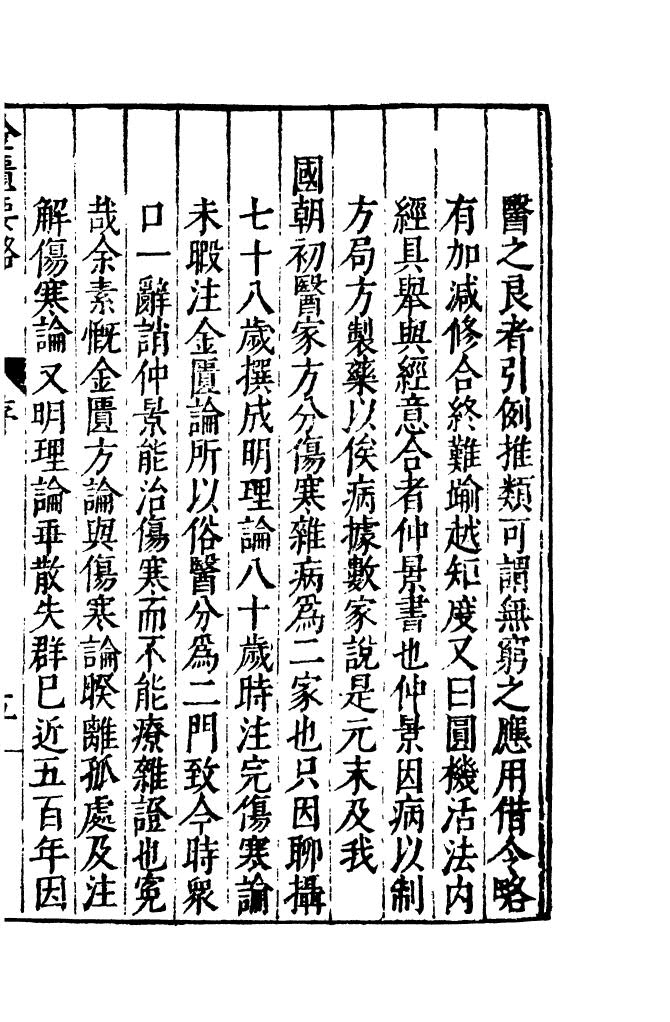 醫之良者引例推類可謂無窮之應用借令略
有加減修合終難踰越矩度又曰圓機活法内
經具舉與經意合者仲景書也仲景因病以制
方局方製藥以俟病據數家說是元末及我
國朝初醫家方分傷寒雜病為二家也只因聊攝
七十八歲撰成明理論八十歲時注完傷寒論
未暇注金匱論所以俗醫分為二門致今時衆
口一辭誚仲景能治傷寒而不能療雜證也寃
哉余素慨金匱方論與傷寒論睽離孤處及注
解傷寒論又明理論乖散失群巳近五百年因
金匱要略
序